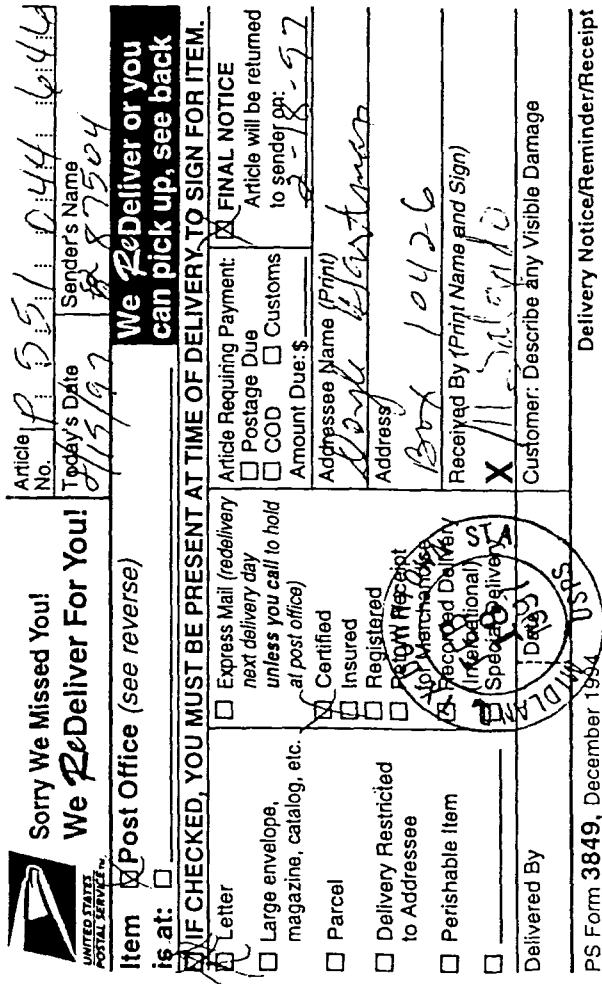 UNITED STATES
POSTAL SERVICE™
Sorry We Missed You!
We ReDeliver For You!
Article
No. P 551 044 644
Today's Date
2/15/97
Sender's Name
#287504
Item
is at:
Post Office (see reverse)
We ReDeliver or you
can pick up, see back
IF CHECKED, YOU MUST BE PRESENT AT TIME OF DELIVERY TO SIGN FOR ITEM.
Letter
Large envelope,
magazine, catalog, etc.
Parcel
Delivery Restricted
to Addressee
Perishable Item
Express Mail (redelivery
next delivery day
unless you call to hold
at post office)
Certified
Insured
Registered
Return Receipt
for Merchandise
Recorded Delivery
(International)
Special Delivery
Article Requiring Payment:
Postage Due
COD
Customs
Amount Due: $
FINAL NOTICE
Article will be returned
to sender on:
2-18-97
Addressee Name (Print)
Doyle Hartman
Address
Box 10426
Received By (Print Name and Sign)
X
Delivered By
Date
Customer: Describe any Visible Damage
MIDLAND
DOWNTOWN STA
FEB
18
1997
USPS
PS Form 3849, December 1994
Delivery Notice/Reminder/Receipt